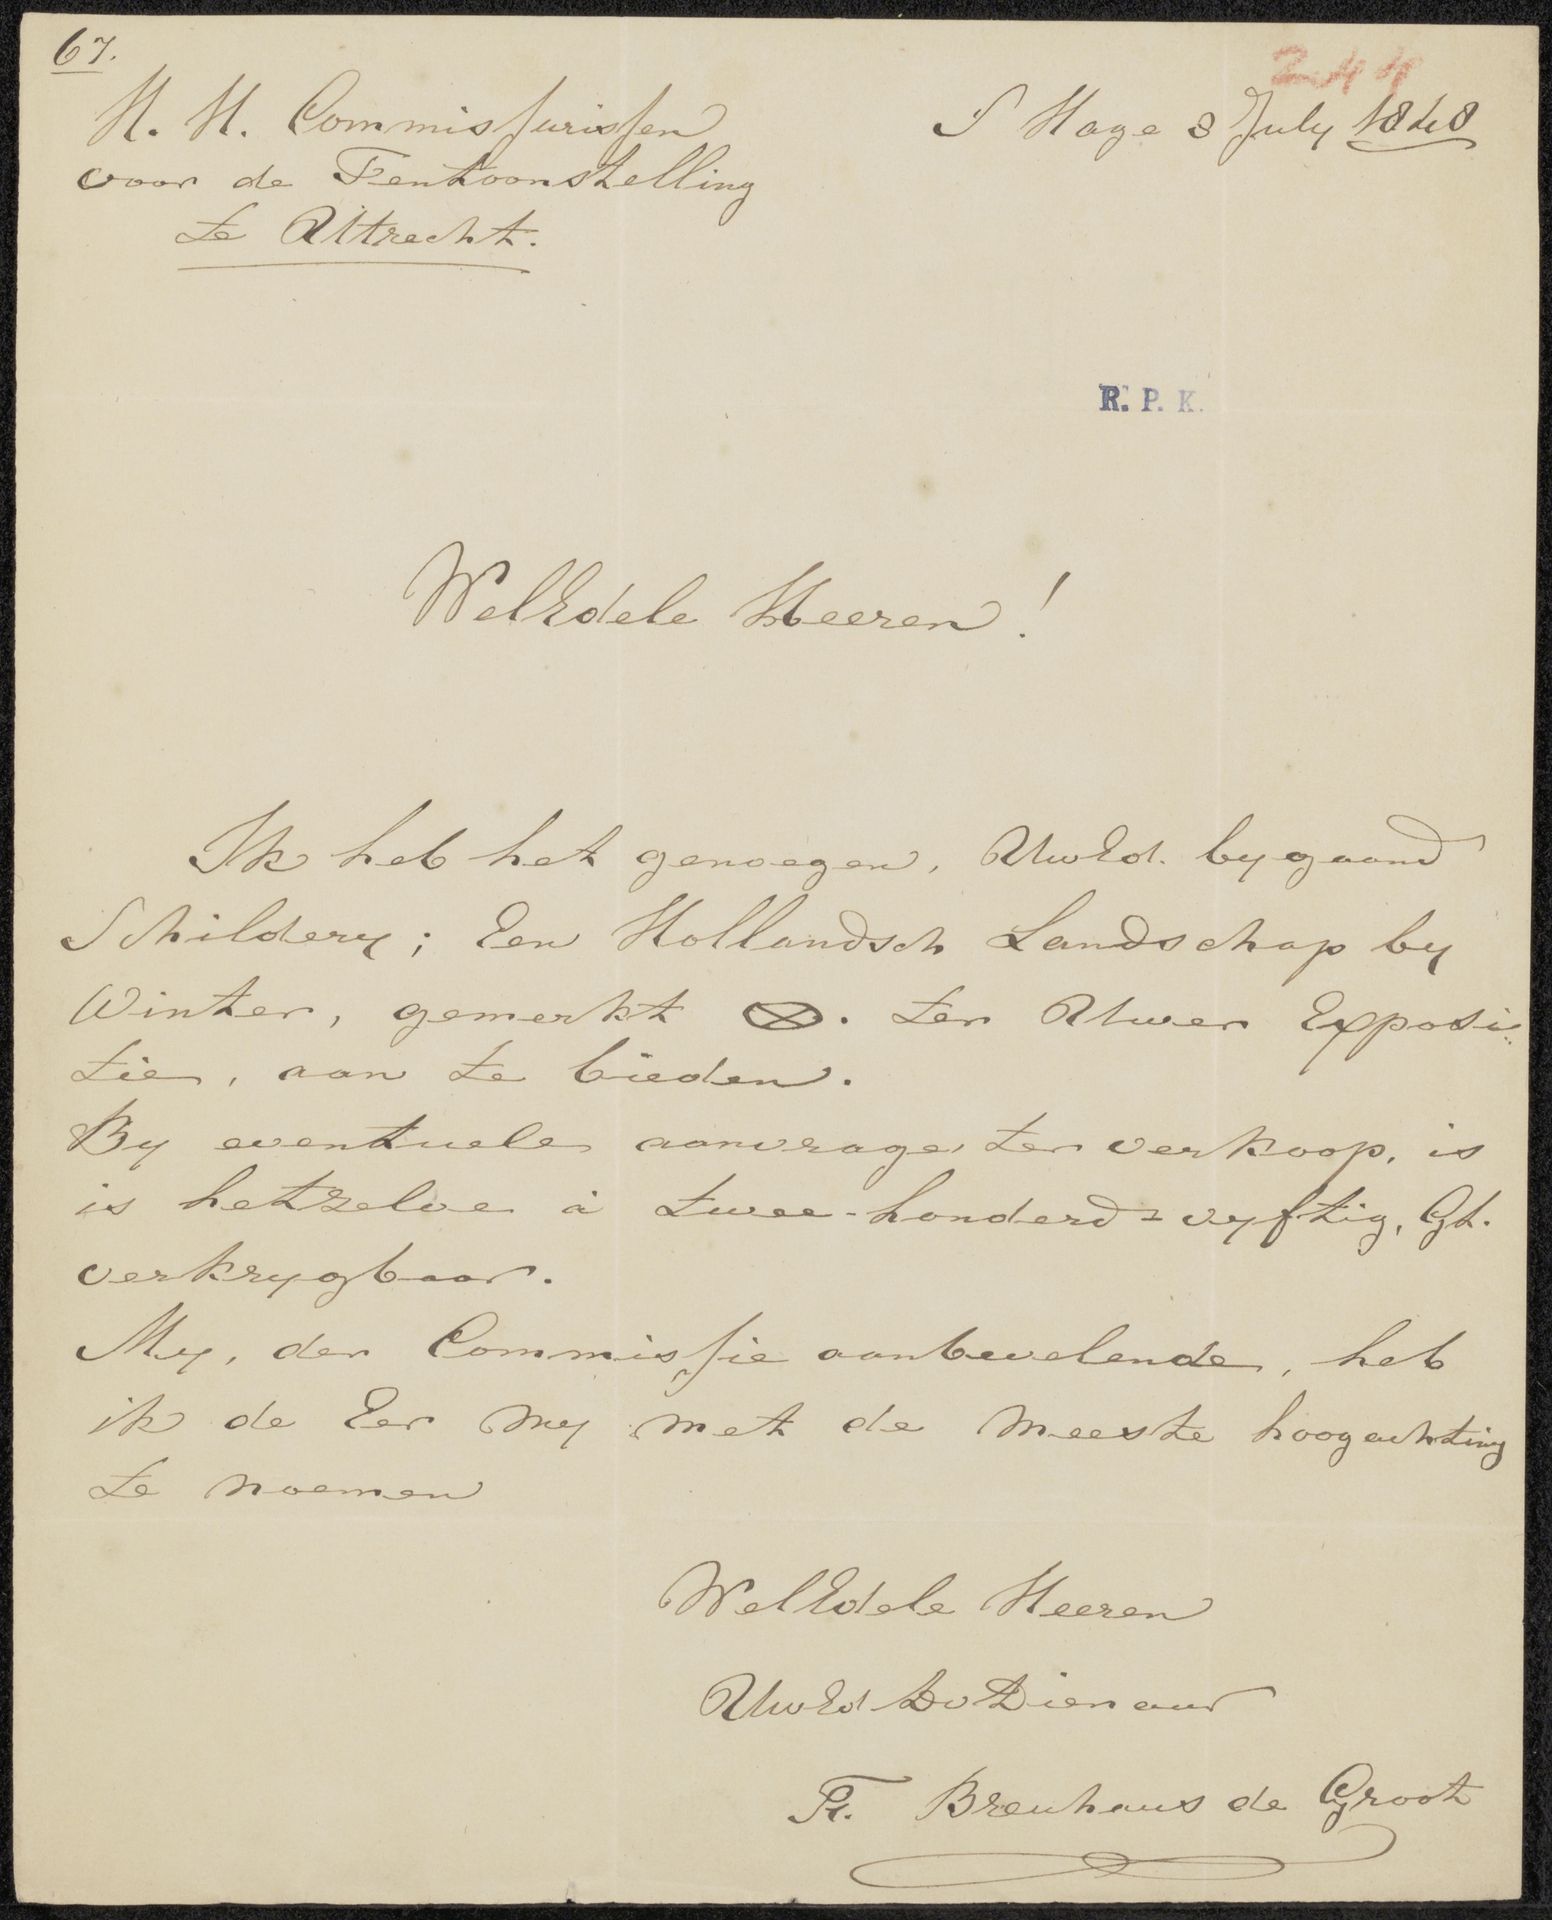 67.
244
H. H. Commissarissen
S Hage 8 July 1848
voor de Tentoonstelling
te Uttrecht.
R. P. K.
WelEdele Heeren!
Ik heb het genoegen, UwEd. bygaand
Schildery; Een Hollandsch Landschap by
Winter, gemerkt ⊗. ter Uwer Exposi-
tie, aan te bieden.
By eventuele aanvrage, ter verkoop, is
is hetzelve à twee-honderd-vyftig, Gl.
verkrygbaar.
My, der Commissie aanbevelende, heb
ik de Eer my met de meeste hoogachting
te noemen
WelEdele Heeren
UwEd Dv Dienaar
Fr. Breuhaus de Groot